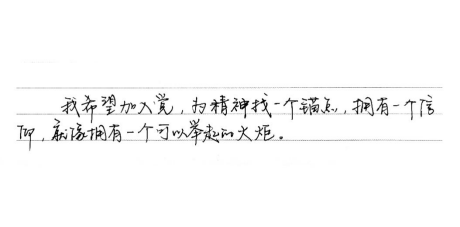 我希望加入党，为精神找一个锚点，拥有一个信
仰，就像拥有一个可以举起的火炬。